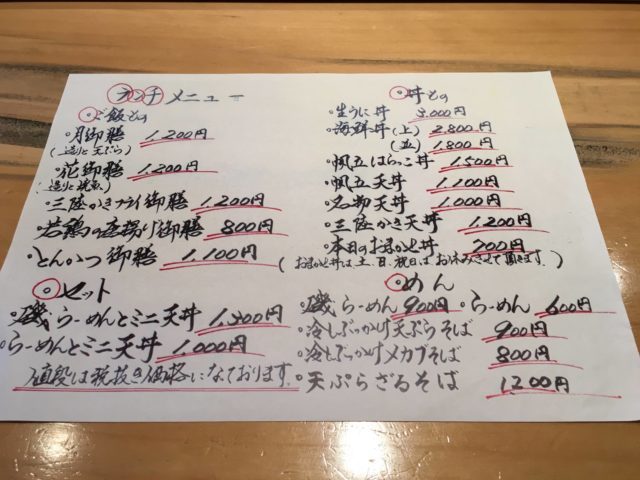 ランチメニュー
○ご飯もの
・月御膳 1.200円
(造りと天ぷら)
・花御膳 1.200円
・三陸かきフライ御膳 1.200円
・若鶏の唐揚げ御膳 800円
・とんかつ御膳 1.100円
○セット
・磯らーめんとミニ天丼 1.300円
・らーめんとミニ天丼 1.000円
値段は税抜き価格になっております。
○丼もの
・生うに丼 3.000円
・海鮮丼(上) 2.800円
(並) 1.800円
・帆立はらっこ丼 1.500円
・帆立天丼 1.100円
・名物天丼 1.000円
・三陸かき天丼 1.200円
・本日のおまかせ丼 700円
(おまかせ丼は土、日、祝日はお休みさせて頂きます。)
○めん
・磯らーめん 900円 ・らーめん 600円
・冷しぶっかけ天ぷらそば 900円
・冷しぶっかけメカブそば 800円
・天ぷらざるそば 1.200円